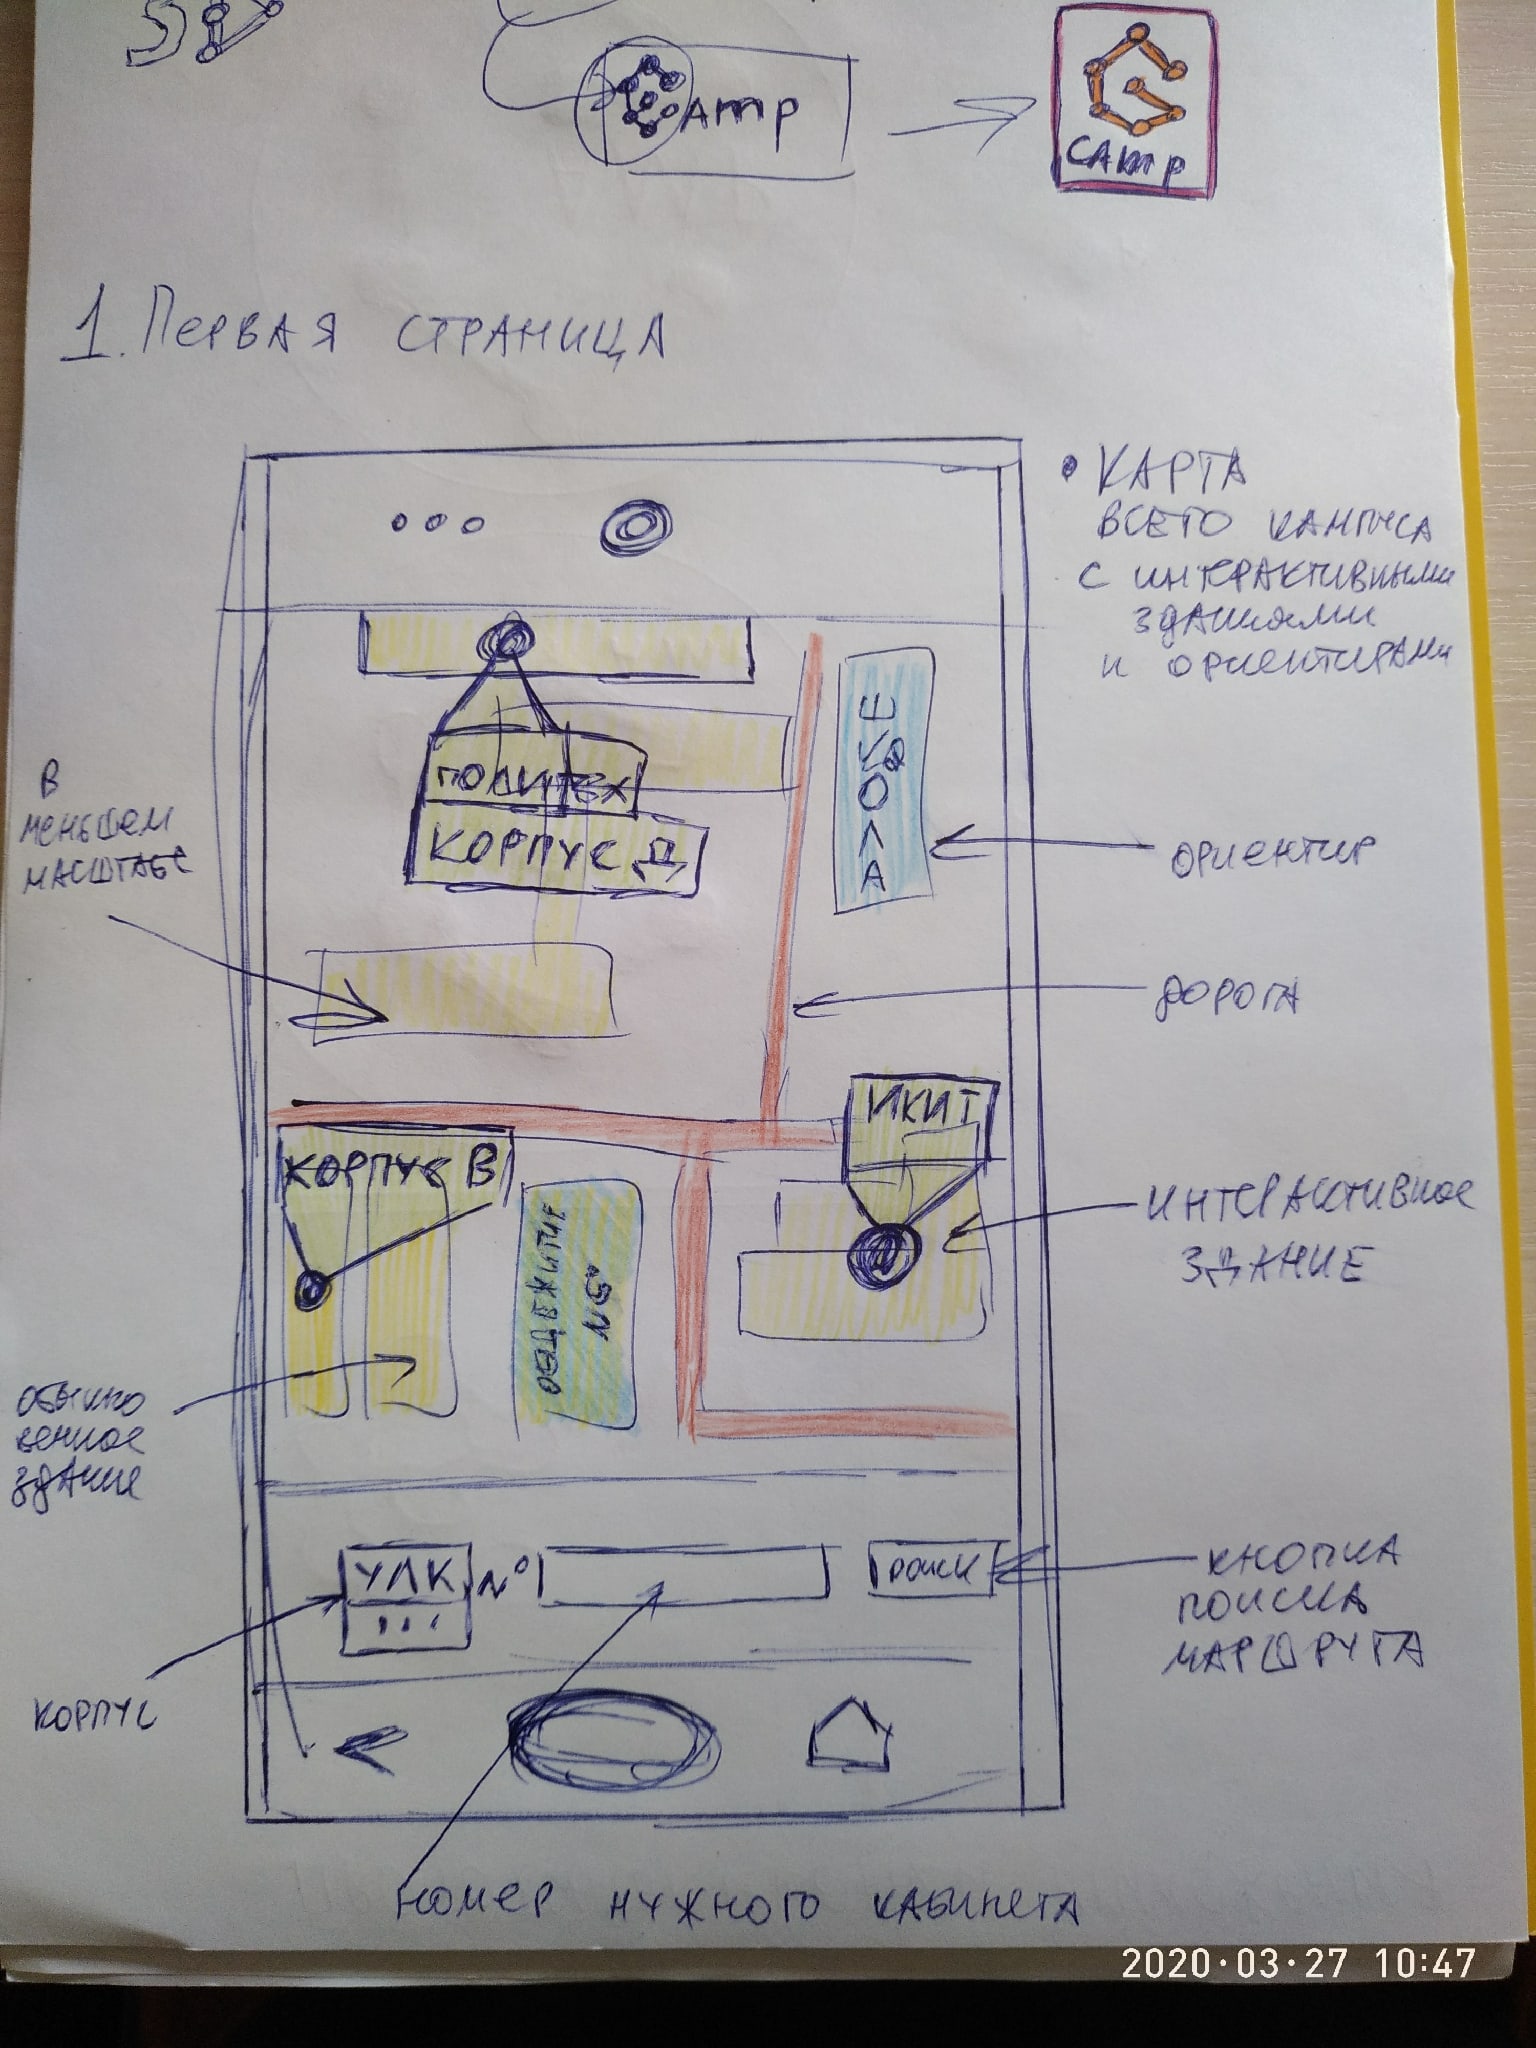 Camp
CAmp
1. Первая страница
• Карта
всего кампуса
с интерактивными
зданиями
и ориентирами
Политех
Корпус Д
В
меньшем
масштабе
ориентир
дорога
ИКИТ
Корпус В
Общежитие
№5
интерактивное
здание
обыкно
венное
здание
УЛК
...
№
кнопка
поиска
маршрута
корпус
номер нужного кабинета
2020.03.27 10:47